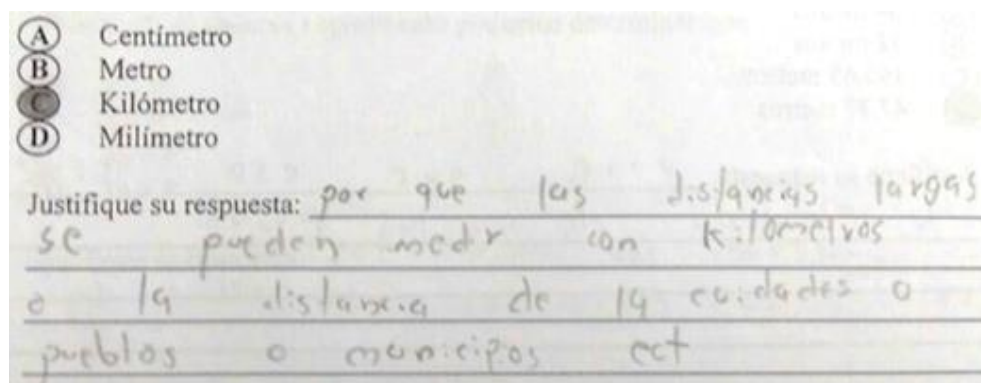 A Centímetro
B Metro
C Kilómetro
D Milímetro
Justifique su respuesta: por que las distancias largas
se pueden medr con kilometros
o la distancia de la cuidades o
pueblos o municipos ect